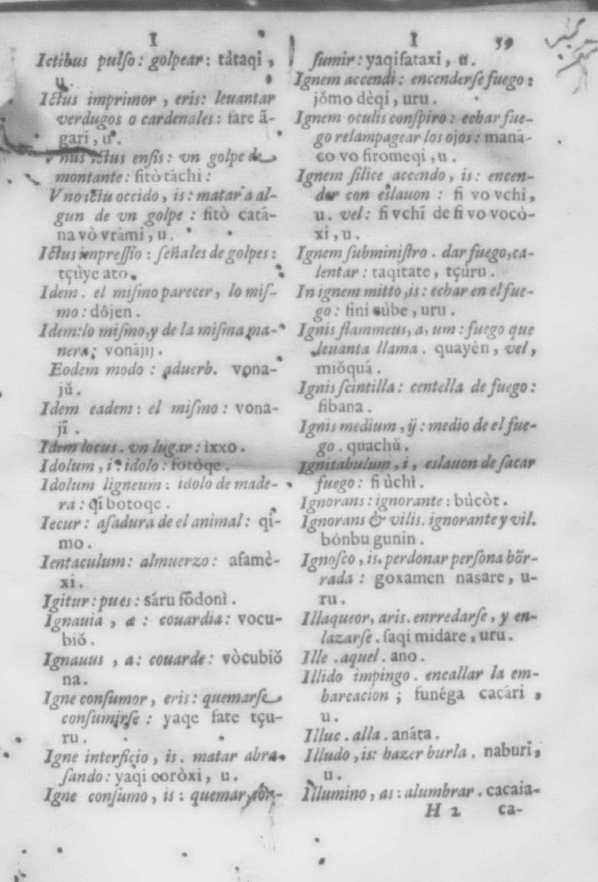 I
Ictibus pulſo: golpear: tátaqi,
u.
Ictus imprimor, eris: leuantar
verdugos o cardenales: fare ã-
gari, u.
Vnus ictus enſis: vn golpe de
montante: fitò tàchi:
Vno ictu occido, is: matar a al-
gun de vn golpe: fitò catà-
na vò vràmi, u.
Ictus impreſſio: ſeñales de golpes:
tçùye ato.
Idem. el miſmo parecer, lo miſ-
mo: dôjen.
Idem: lo miſmo, y de la miſma ma-
nera; vonàjij.
Eodem modo: aduerb. vona-
jŭ.
Idem eadem: el miſmo: vona-
jī.
Idem locus. vn lugar: ixxo.
Idolum, i: idolo: fotòqe.
Idolum ligneum: idolo de made-
ra: qī botoqe.
Iecur: aſadura de el animal: qī-
mo.
Ientaculum: almuerzo: aſamè-
xi.
Igitur: pues: sáru fōdonì.
Ignauia, æ: couardia: vocu-
biŏ.
Ignauus, a: couarde: vòcubiŏ
na.
Igne conſumor, eris: quemarſe
conſumirſe: yaqe fate tçu-
ru.
Igne interficio, is. matar abra-
ſando: yaqi coròxi, u.
Igne conſumo, is: quemar, con-
I 59
ſumir: yaqifataxi, u.
Ignem accendi: encenderſe fuego:
jŏmo dèqi, uru.
Ignem oculis conſpiro: echar fue-
go relampagear los ojos: manà-
co vo firomeqi, u.
Ignem ſilice accendo, is: encen-
der con eslauon: fi vo vchi,
u. vel: fi vchī de fi vo vocò-
xi, u.
Ignem ſubminiſtro. dar fuego, ca-
lentar: taqitate, tçuru.
In ignem mitto, is: echar en el fue-
go: fini cùbe, uru.
Ignis flammeus, a, um: fuego que
leuanta llama. quayèn, vel,
miŏquá.
Ignis ſcintilla: centella de fuego:
fibana.
Ignis medium, ij: medio de el fue-
go. quachŭ.
Ignitabulum, i, eslauon de ſacar
fuego: fi ùchì.
Ignorans: ignorante: bùcòt.
Ignorans & vilis. ignorante y vil.
bónbu gunin.
Ignoſco, is. perdonar perſona hōr-
rada: goxamen nasare, u-
ru.
Illaqueor, aris. enrredarſe, y en-
lazarſe. faqi midare, uru.
Ille. aquel. ano.
Illido impingo. encallar la em-
barcacion; funéga cacári,
u.
Illuc. alla. anáta.
Illudo, is: hazer burla. naburi,
u.
Illumino, as: alumbrar. cacaia-
H 2 ca-